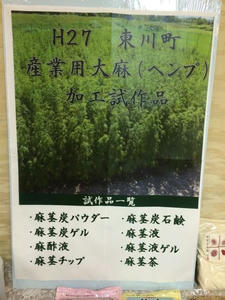 H27 東川町
産業用大麻(ヘンプ)
加工試作品
試作品一覧
・麻茎炭パウダー
・麻茎炭ゲル
・麻酢液
・麻茎チップ
・麻茎炭石鹸
・麻茎液
・麻茎液ゲル
・麻茎茶